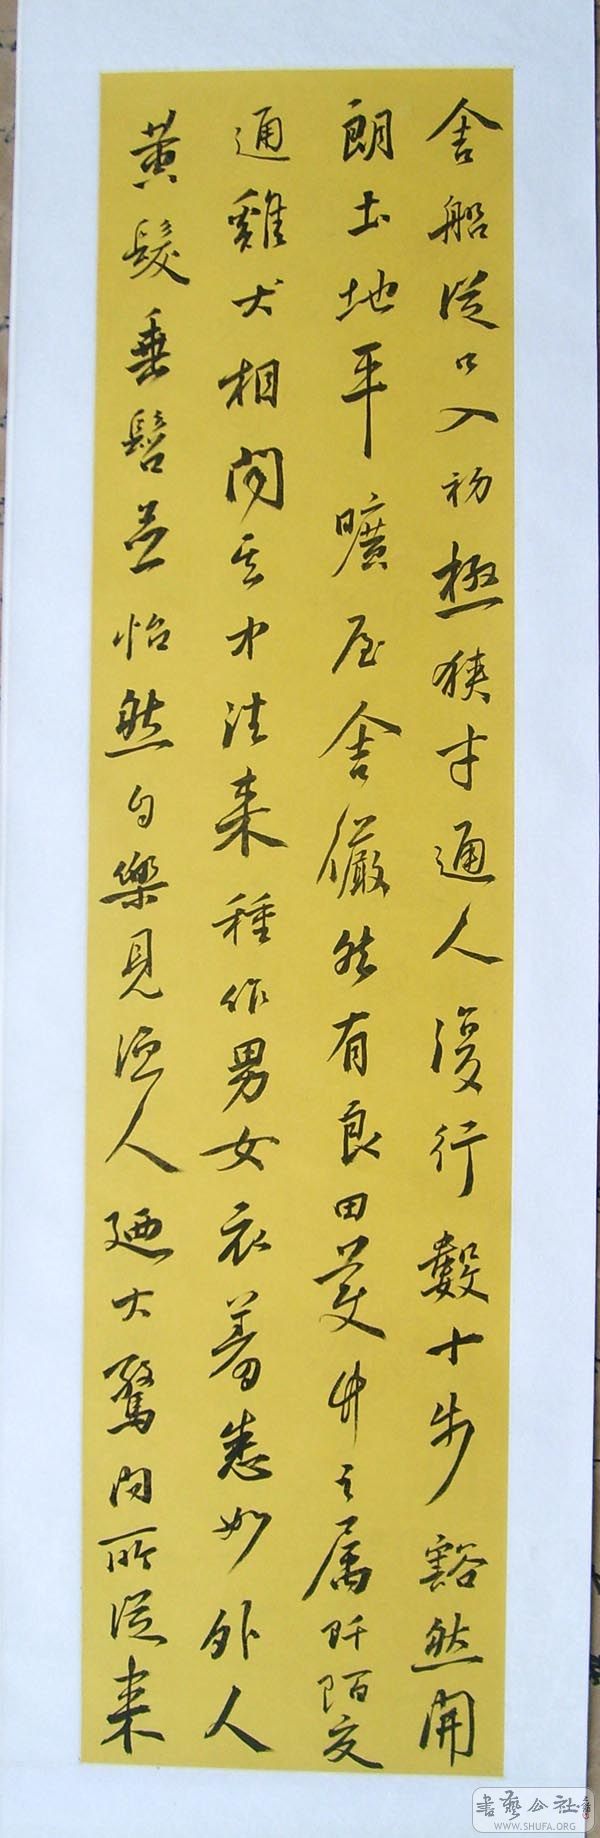 舍船從口入初極狹才通人復行數十步豁然開
朗土地平曠屋舍儼然有良田美竹之属阡陌交
通雞犬相聞其中往來種作男女衣着悉如外人
黃髮垂髫並怡然自樂見漁人廼大驚問所從來
書藝公社
WWW.SHUFA.ORG